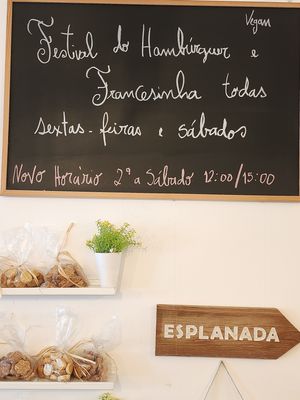 Vegan
Festival do Hambúrguer e
Francesinha todas
sextas-feiras e sábados
Novo Horário 2ª a Sábado 12:00/15:00
ESPLANADA